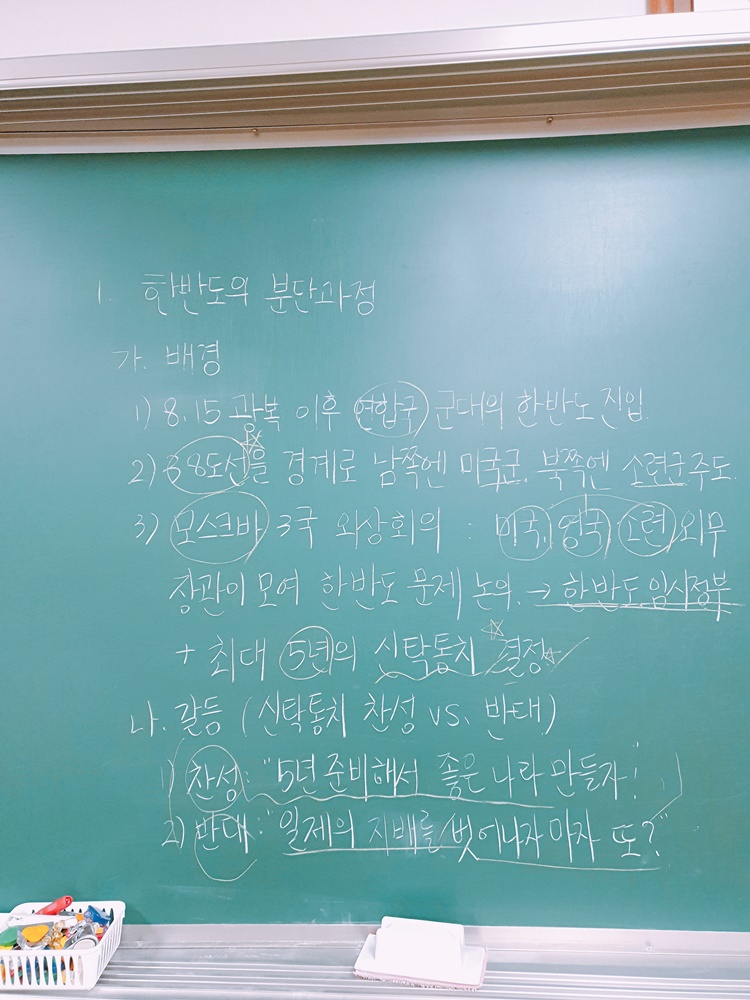 1. 한반도의 분단과정
가. 배경
1) 8.15 광복 이후 연합국 군대의 한반도 진입
2) 38도선을 경계로 남쪽엔 미국군, 북쪽엔 소련군 주도
3) 모스크바 3국 외상회의 : 미국, 영국, 소련 외무
장관이 모여 한반도 문제 논의. → 한반도 임시정부
+ 최대 5년의 신탁통치 결정
나. 갈등 (신탁통치 찬성 vs. 반대)
1) 찬성: "5년 준비해서 좋은 나라 만들자!"
2) 반대: "일제의 지배를 벗어나자마자 또?"